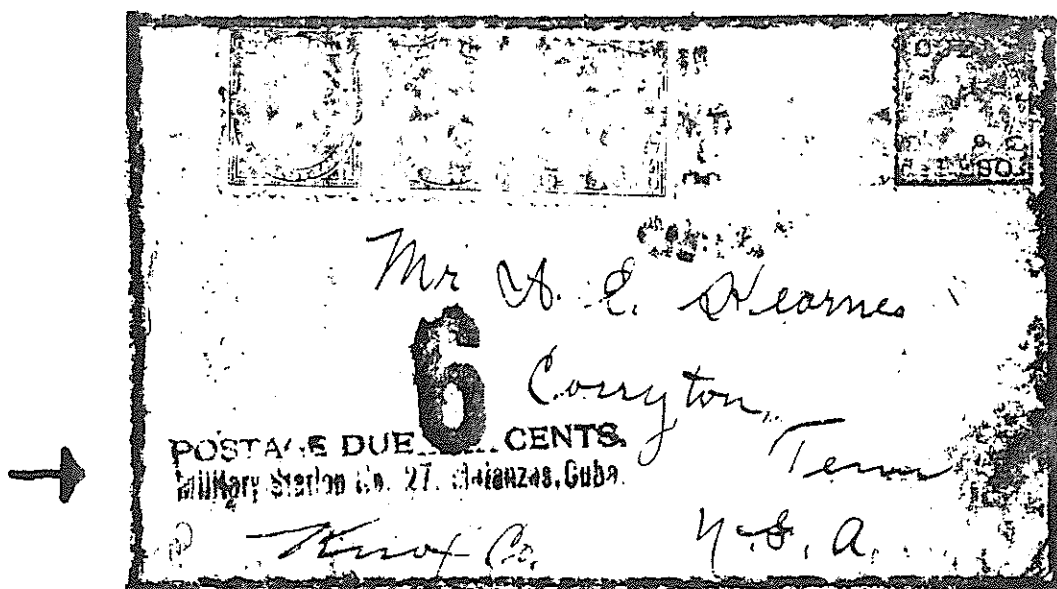 Mr A. E. Kearnes
6
Corryton,
POSTAGE DUE CENTS.
Tenn
Military Station No. 27. Matanzas, Cuba.
Knox Co.
U.S.A.